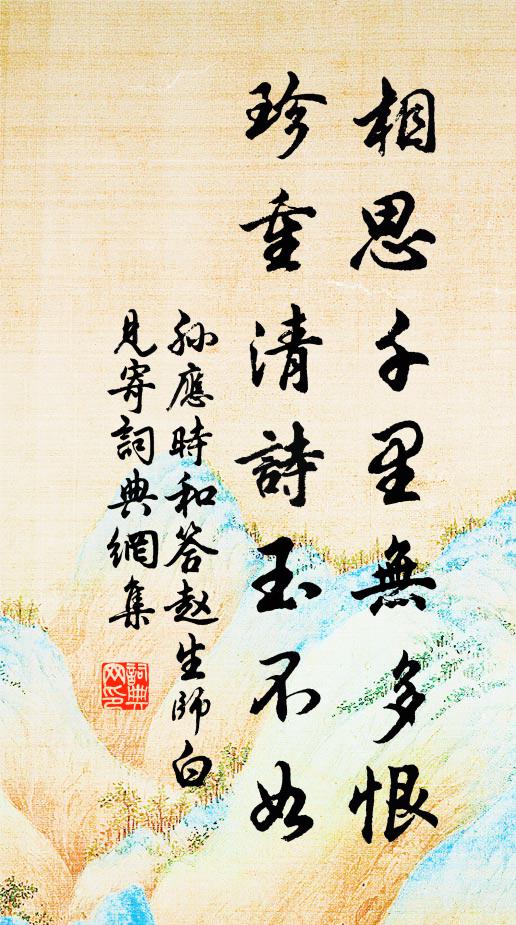 相思千里無多恨
珍重清詩玉不如
孫應時和答赵生師白
見寄詞典網集
詞典网印